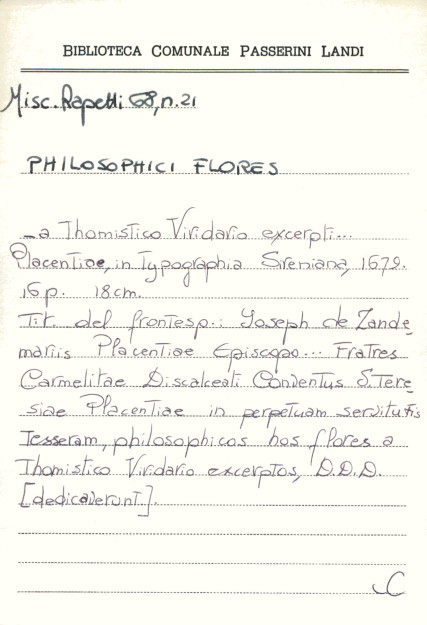 BIBLIOTECA COMUNALE PASSERINI LANDI
Misc. Rapetti 68, n. 21
PHILOSOPHICI FLORES
_a Thomistico Viridario excerpti...
Placentiae, in Typographia Sireniana, 1679.
16 p. 18 cm.
Tit. del frontesp.: Joseph de Zande
mariis Placentiae Episcopo... Fratres
Carmelitae Discalceati Conventus S. Tere
siae Placentiae in perpetuam servitutis
Tesseram, philosophicos hos flores a
Thomistico Viridario excerptos, D.D.D.
[dedicaverunt].
C